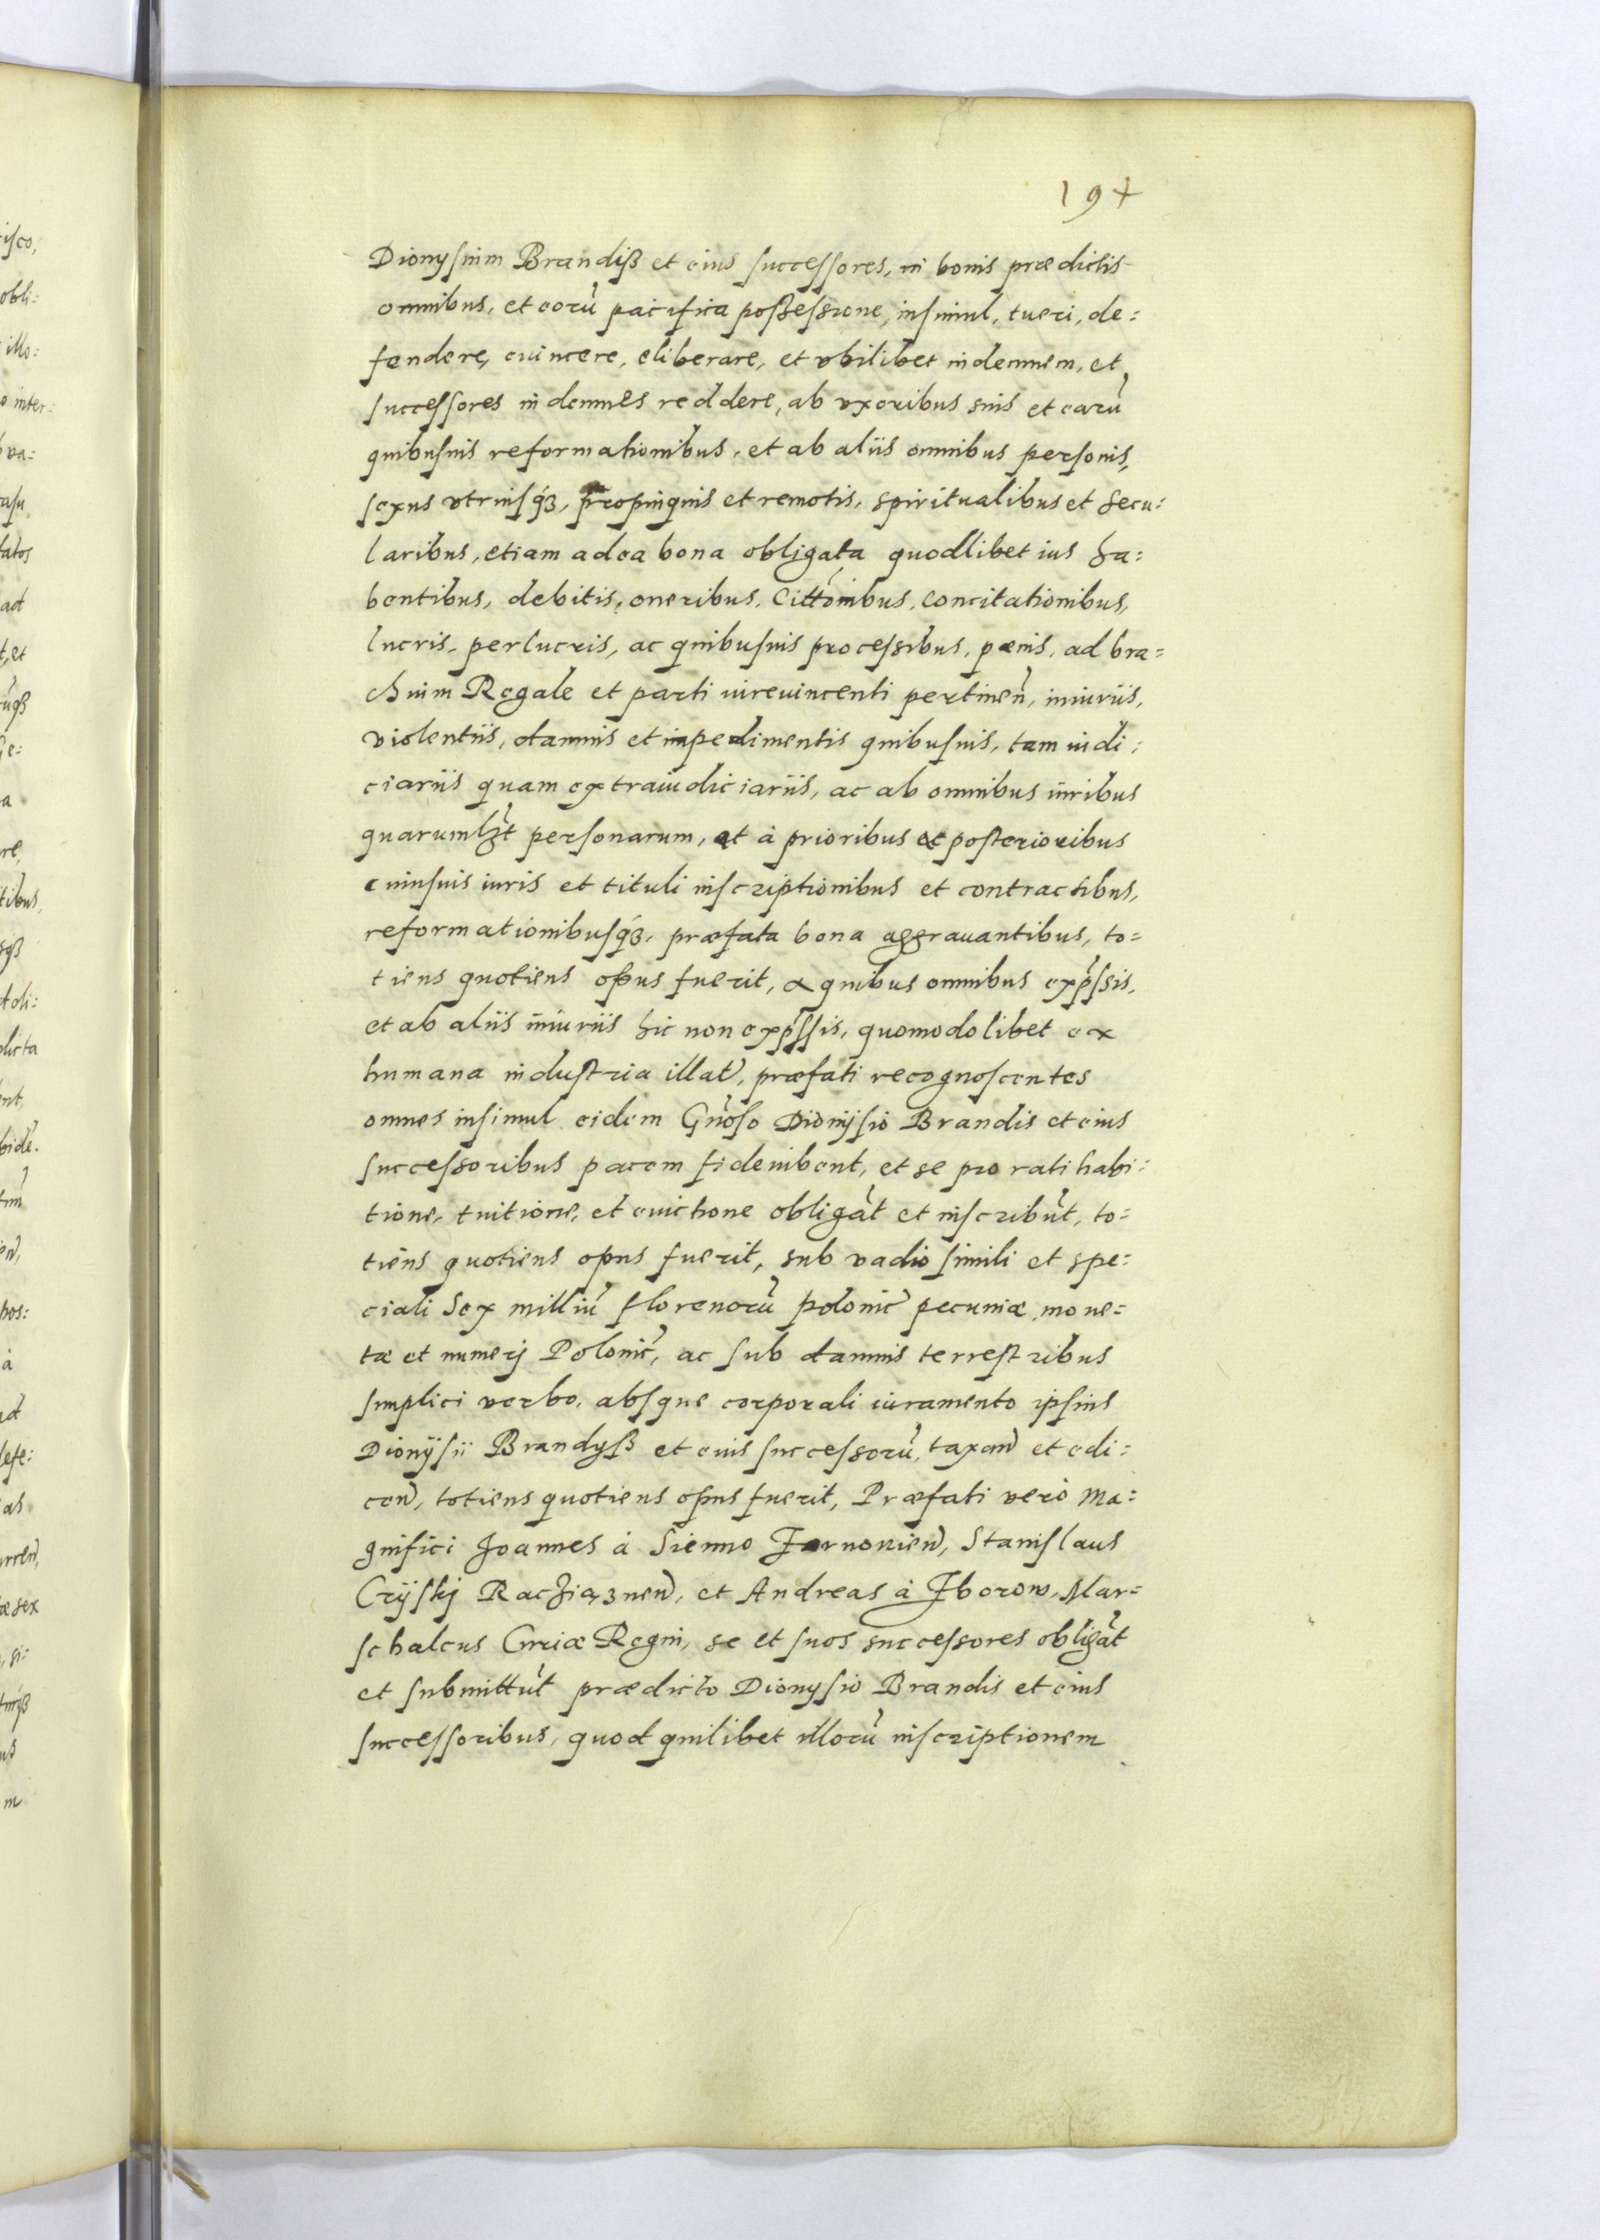 197
Dionysium Brandiß et eius successores, in bonis prædictis
omnibus, et eorũ pacifica possessione, insimul, tueri, de=
fendere, euincere, eliberare, et vbilibet indemnem, et
successores indemnes reddere, ab vxoribus suis et earũ
quibusuis reformationibus, et ab aliis omnibus personis,
sexus vtriusq₃, propinquis et remotis, spiritualibus et secu:
laribus, etiam ad ea bona obligata quodlibet ius ha:
bentibus, debitis, oneribus, Cittõnibus, Concitationibus,
lucris, perlucris, ac quibusuis processibus, pænis, ad bra=
chium Regale et parti iurevincenti pertineñ, iniuriis,
violentiis, damnis et impedimentis quibusuis, tam iudi:
ciariis quam extraiudiciariis, ac ab omnibus iuribus
quarumlȝt personarum, et à prioribus et posterioribus
cuiusuis iuris et tituli inscriptionibus et contractibus,
reformationibusq₃, præfata bona aggrauantibus, to=
tiens quotiens opus fuerit, a quibus omnibus exp̃ssis,
et ab aliis iniuriis hic non exp̃ssis, quomodolibet ex
humana industria illat̃, præfati recognoscentes
omnes insimul eidem Gñoso Dionÿsio Brandis et eius
successoribus pacem fideiubent, et se pro rati habi:
tione, tuitione, et euictione obligãt et inscribũt, to=
tiens quotiens opus fuerit, sub vadio simili et spe=
ciali Sex milliũ florenorũ polonic̃ pecuniæ, mone=
tæ et numerj Polonic̃, ac sub damnis terrestribus
simplici verbo, absque corporali iuramento ipsius
Dionÿsii Brandyß et eius successorũ, taxañ et edi:
ceñ, totiens quotiens opus fuerit, Præfati verò Ma:
gnifici Joannes à Sienno Żarnovieñ, Stanislaus
Crÿskj Raciązneñ, et Andreas à Zborow, Mar=
schalcus Curiæ Regni, se et suos successores obligãt
et submittũt prædicto Dionysio Brandis et eius
successoribus, quod quilibet illorũ inscriptionem